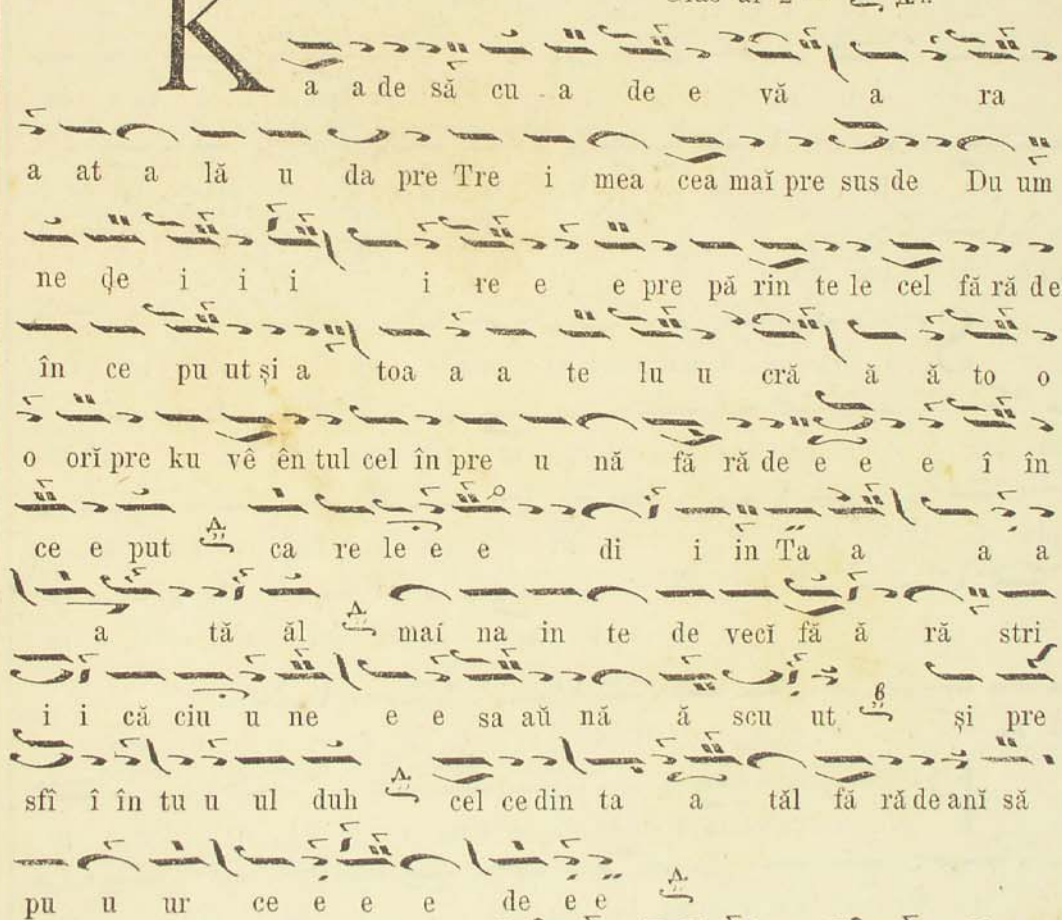 K
a a de să cu a de e vă a ra
a at a lă u da pre Tre i mea cea maĭ pre sus de Du um
ne de i i i i re e e pre pă rin te le cel fă ră de
în ce pu ut și a toa a a te lu u cră ă ă to o
o orĭ pre ku vê ên tul cel în pre u nă fă ră de e e e î în
ce e put ca re le e e di i in Ta a a a
a tă ăl maí na in te de vecĭ fă ă ră stri
i i că ciu u ne e e sa aŭ nă ă scu ut și pre
sfî î în tu u ul duh cel ce din ta a tăl fă ră de anĭ să
pu u ur ce e e e de e e